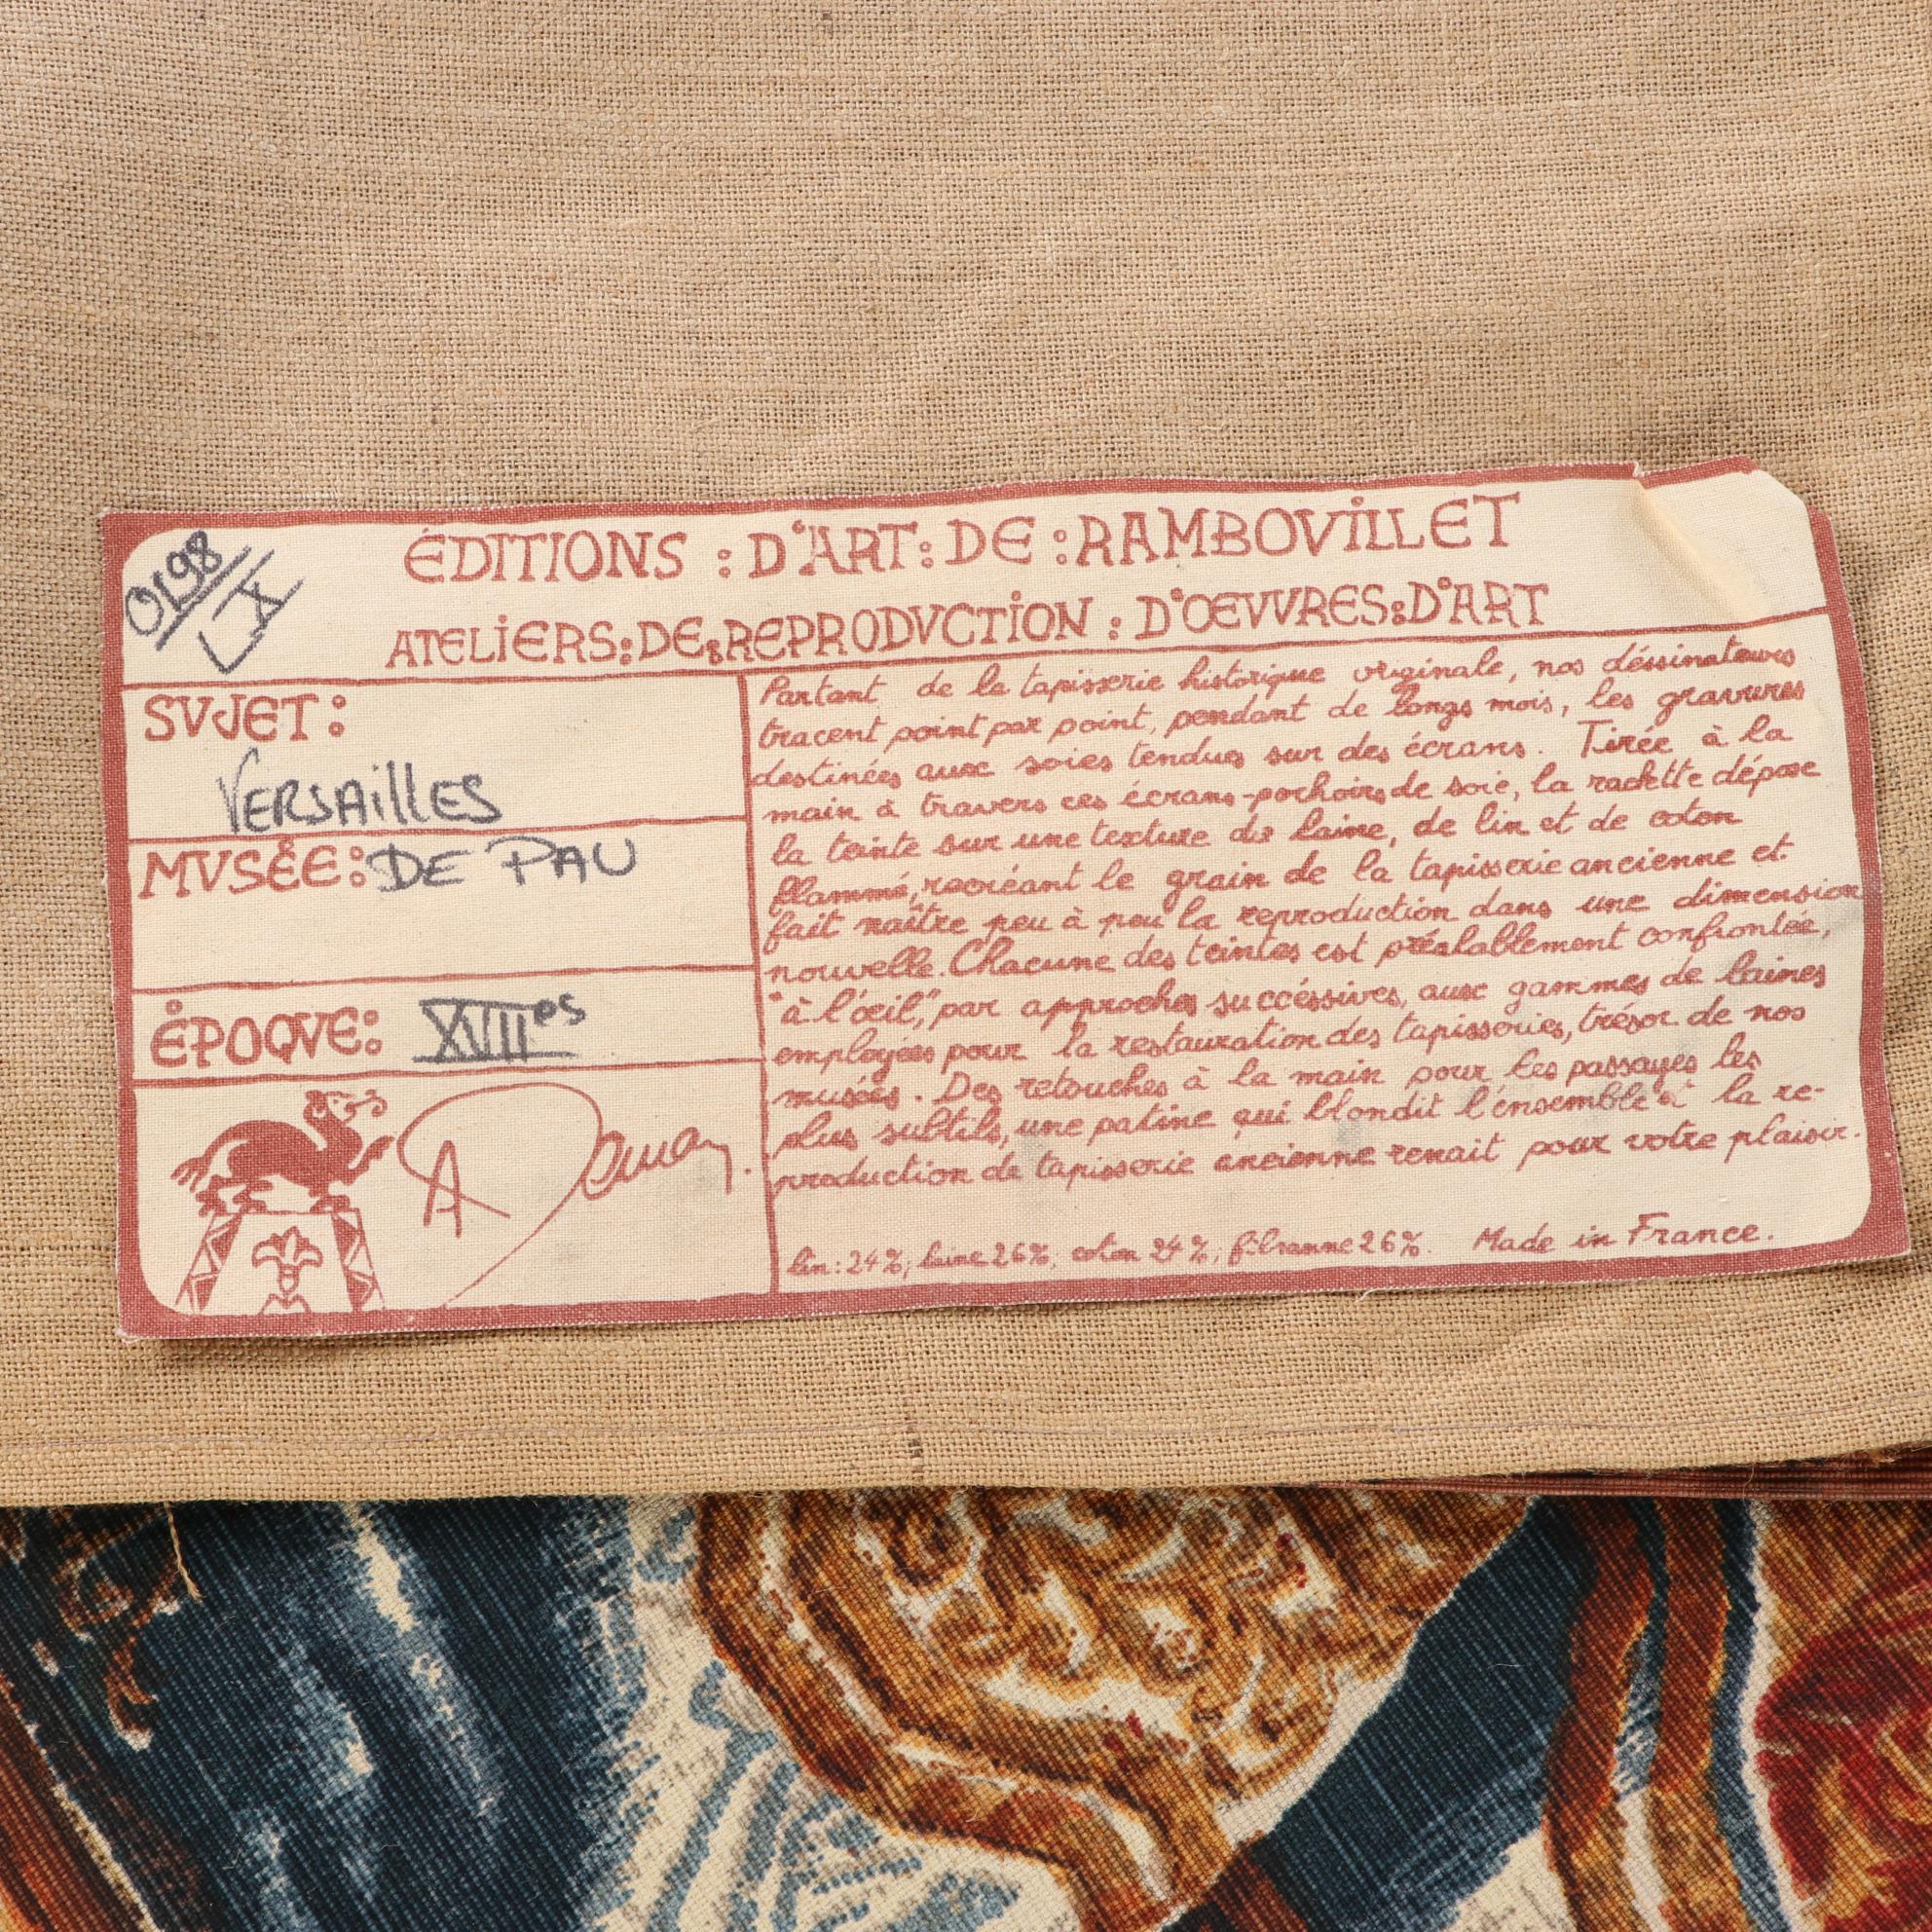 0198
ÉDITIONS : D'ART : DE : RAMBOVILLET
ATELIERS : DE : REPRODVCTION : D'ŒVVRES : D'ART
SVJET :
VERSAILLES
MVSÉE : DE PAU
ÉPOQVE : XVIIes
Partant de la tapisserie historique originale, nos déssinateurs
tracent point par point, pendant de longs mois, les gravures
destinées aux soies tendues sur des écrans. Tirée à la
main à travers ces écrans-pochoirs de soie, la raclette dépose
la teinte sur une texture de laine, de lin et de coton
flammé, recréant le grain de la tapisserie ancienne et
fait naître peu à peu la reproduction dans une dimension
nouvelle. Chacune des teintes est préalablement confrontée,
"à l'œil," par approches succéssives, aux gammes de laines
employées pour la restauration des tapisseries, trésor de nos
musées. Des retouches à la main pour les passages les
plus subtils, une patine qui blondit l'ensemble et la re-
production de tapisserie ancienne renait pour votre plaisir.
lin : 24%, laine 26%, coton 24%, fibranne 26%. Made in France.